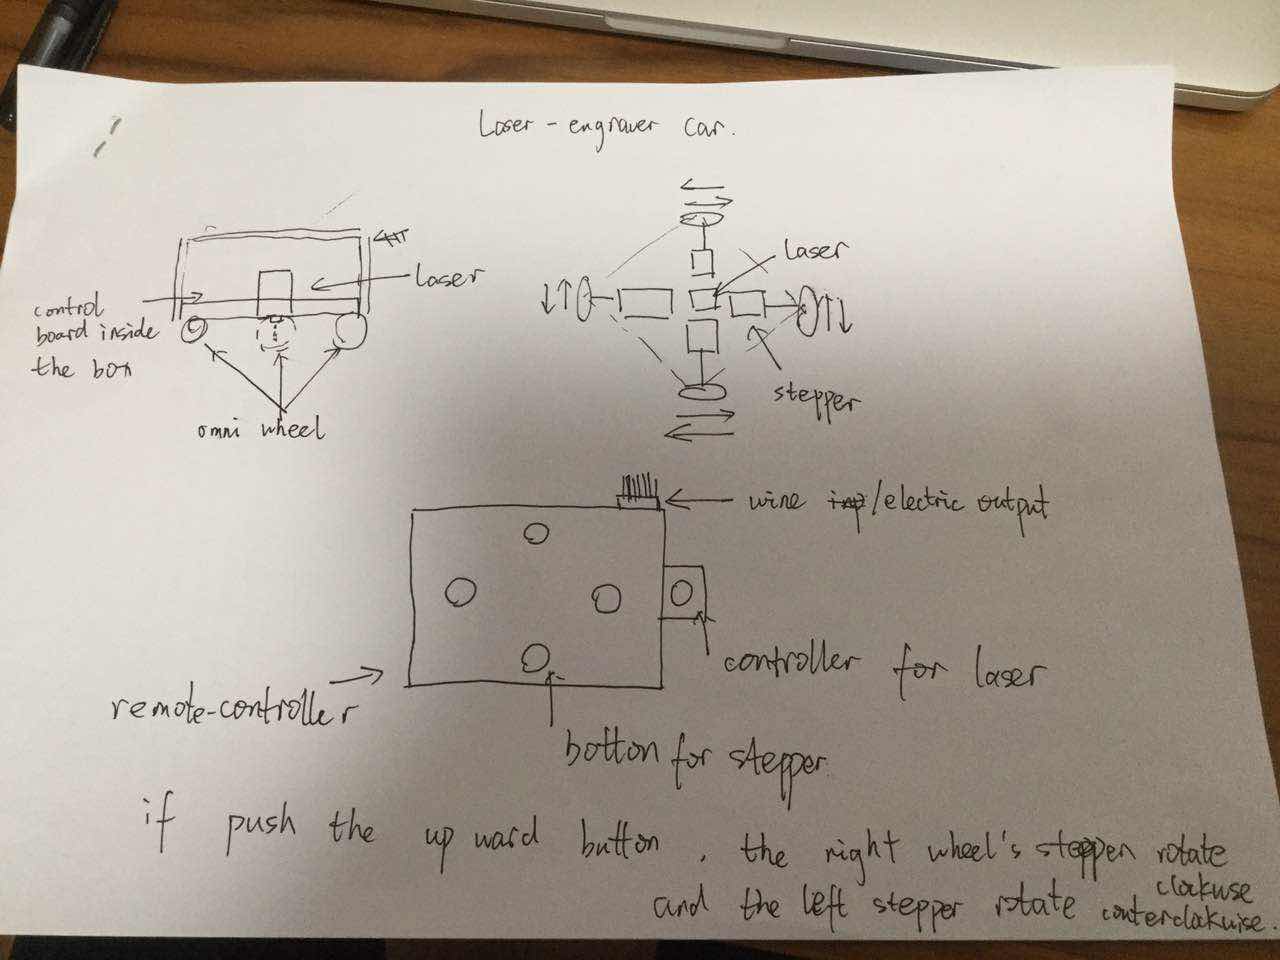 Laser-engraver car.
laser
laser
control
board inside
the box
omni wheel
stepper
wire inp/electric output
controller for laser
remote-controller
botton for stepper
if push the upward button, the right wheel's stepper rotate
clockwise
and the left stepper rotate conterclokwise.